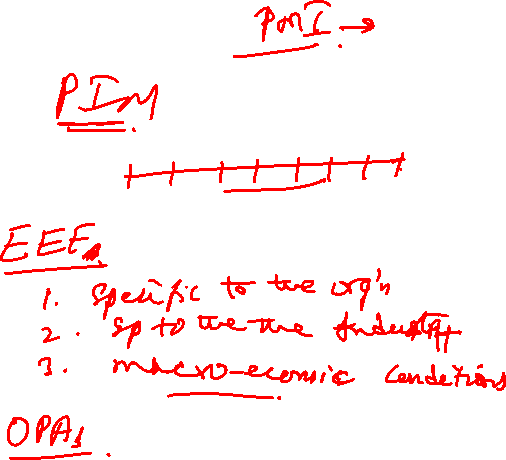 PMI →
PIM
EEFs
1. Specific to the org'n
2. sp to the the Industry
3. macro-econoic conditions
OPAs